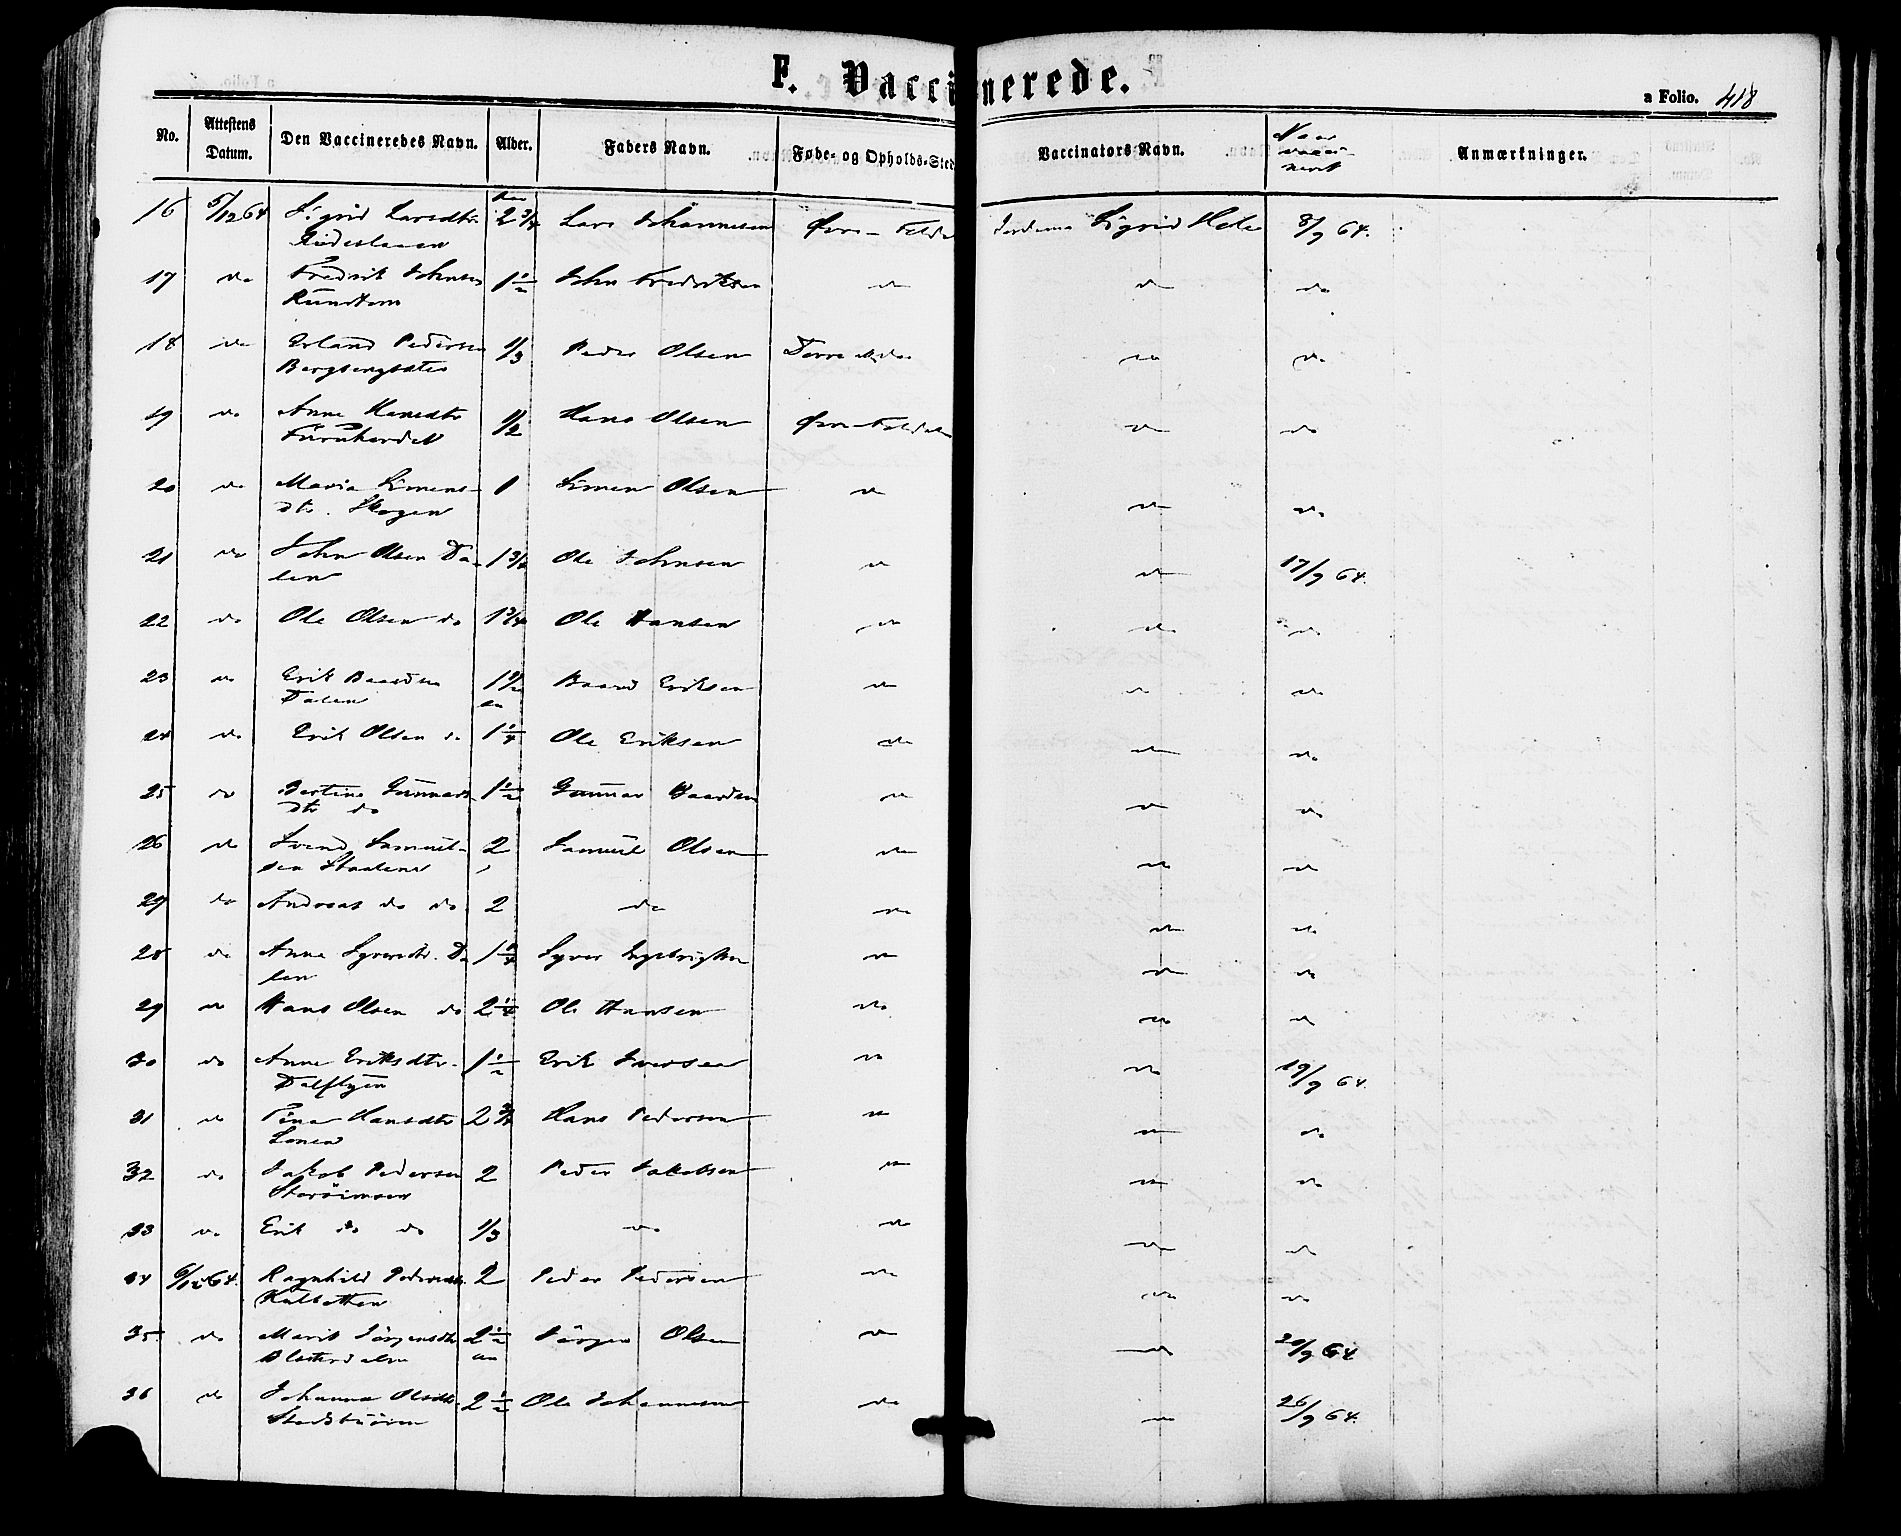 F. Vaccinerede.
a Folio. 418
No. Attestens Datum. Den Vaccineredes Navn. Alder. Faders Navn. Føde- og Opholds-Sted Vaccinators Navn. Naar vacci- neret Anmærkninger.
16 5/12 64 Sigrid Larsdtr 2 3/4 Lars Johannesen Øvre - Jordemo Sigrid 8/9 64.
17 do Fredrik Johnsen 1 1/2 John Fredriksen do do do
18 do Erland Pedersen 1/3 Peder Olsen do do
19 do Anne Hansdtr 1/2 Hans Olsen Øvre do do
20 do Maria Simens- 1 Simen Olsen do do do
dtr. Skogen
21 do John Olsen Da- 1 3/4 Ole Johnsen do do 17/9 64.
len
22 do Ole Olsen do 1 3/4 Ole Hansen do do do
23 do Erik Baardsen Baard Eriksen do do do
Dalen
24 do Erik Olsen do 1 1/4 Ole Eriksen do do do
25 do Bertine Gunnars- 1 1/2 Gunnar Baardsen do do do
dtr do
26 do Svend Samuel- 2 Samuel Olsen do do do
sen
27 do Andreas do do 2 do do do do
28 do Anne Syversdtr. Da Syver Ingebrigtsen do do do
len
29 do Hans Olsen do 2 1/4 Ole Hansen do do do
30 do Anne Eriksdtr. 1 1/2 Erik Iversen do do 19/9 64.
31 do Hansdtr 2 3/4 Hans Pedersen do do do
32 do Jakob Pedersen 2 Peder Jakobsen do do do
33 do Erik do do 1/3 do do do do
34 6/12 64. Ragnhild Pedersdtr. 2 Peder Pedersen do do do
35 do Marit Jörgensdtr 2 1/2 Jörgen Olsen do do 20/9 64
36 do Johanne Olsdtr. 2 1/2 Ole Johannesen do do 26/9 64.